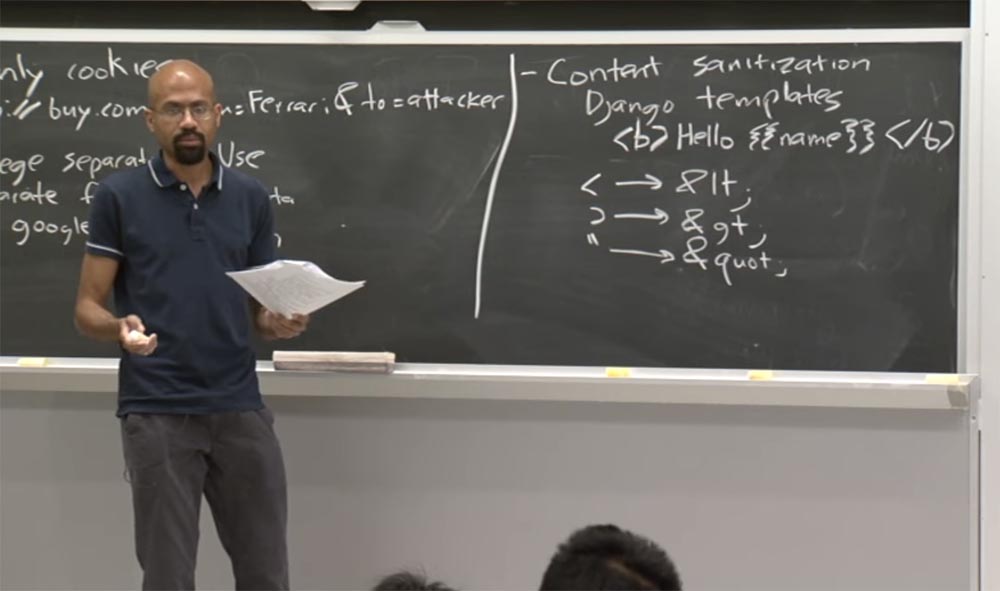 nly cookies
buy.com =Ferrari & to=attacker
ege separat Use
arate f ta
google
- Content sanitization
Django templates
<b>Hello {{name}}</b>
< → &lt;
> → &gt;
" → &quot;